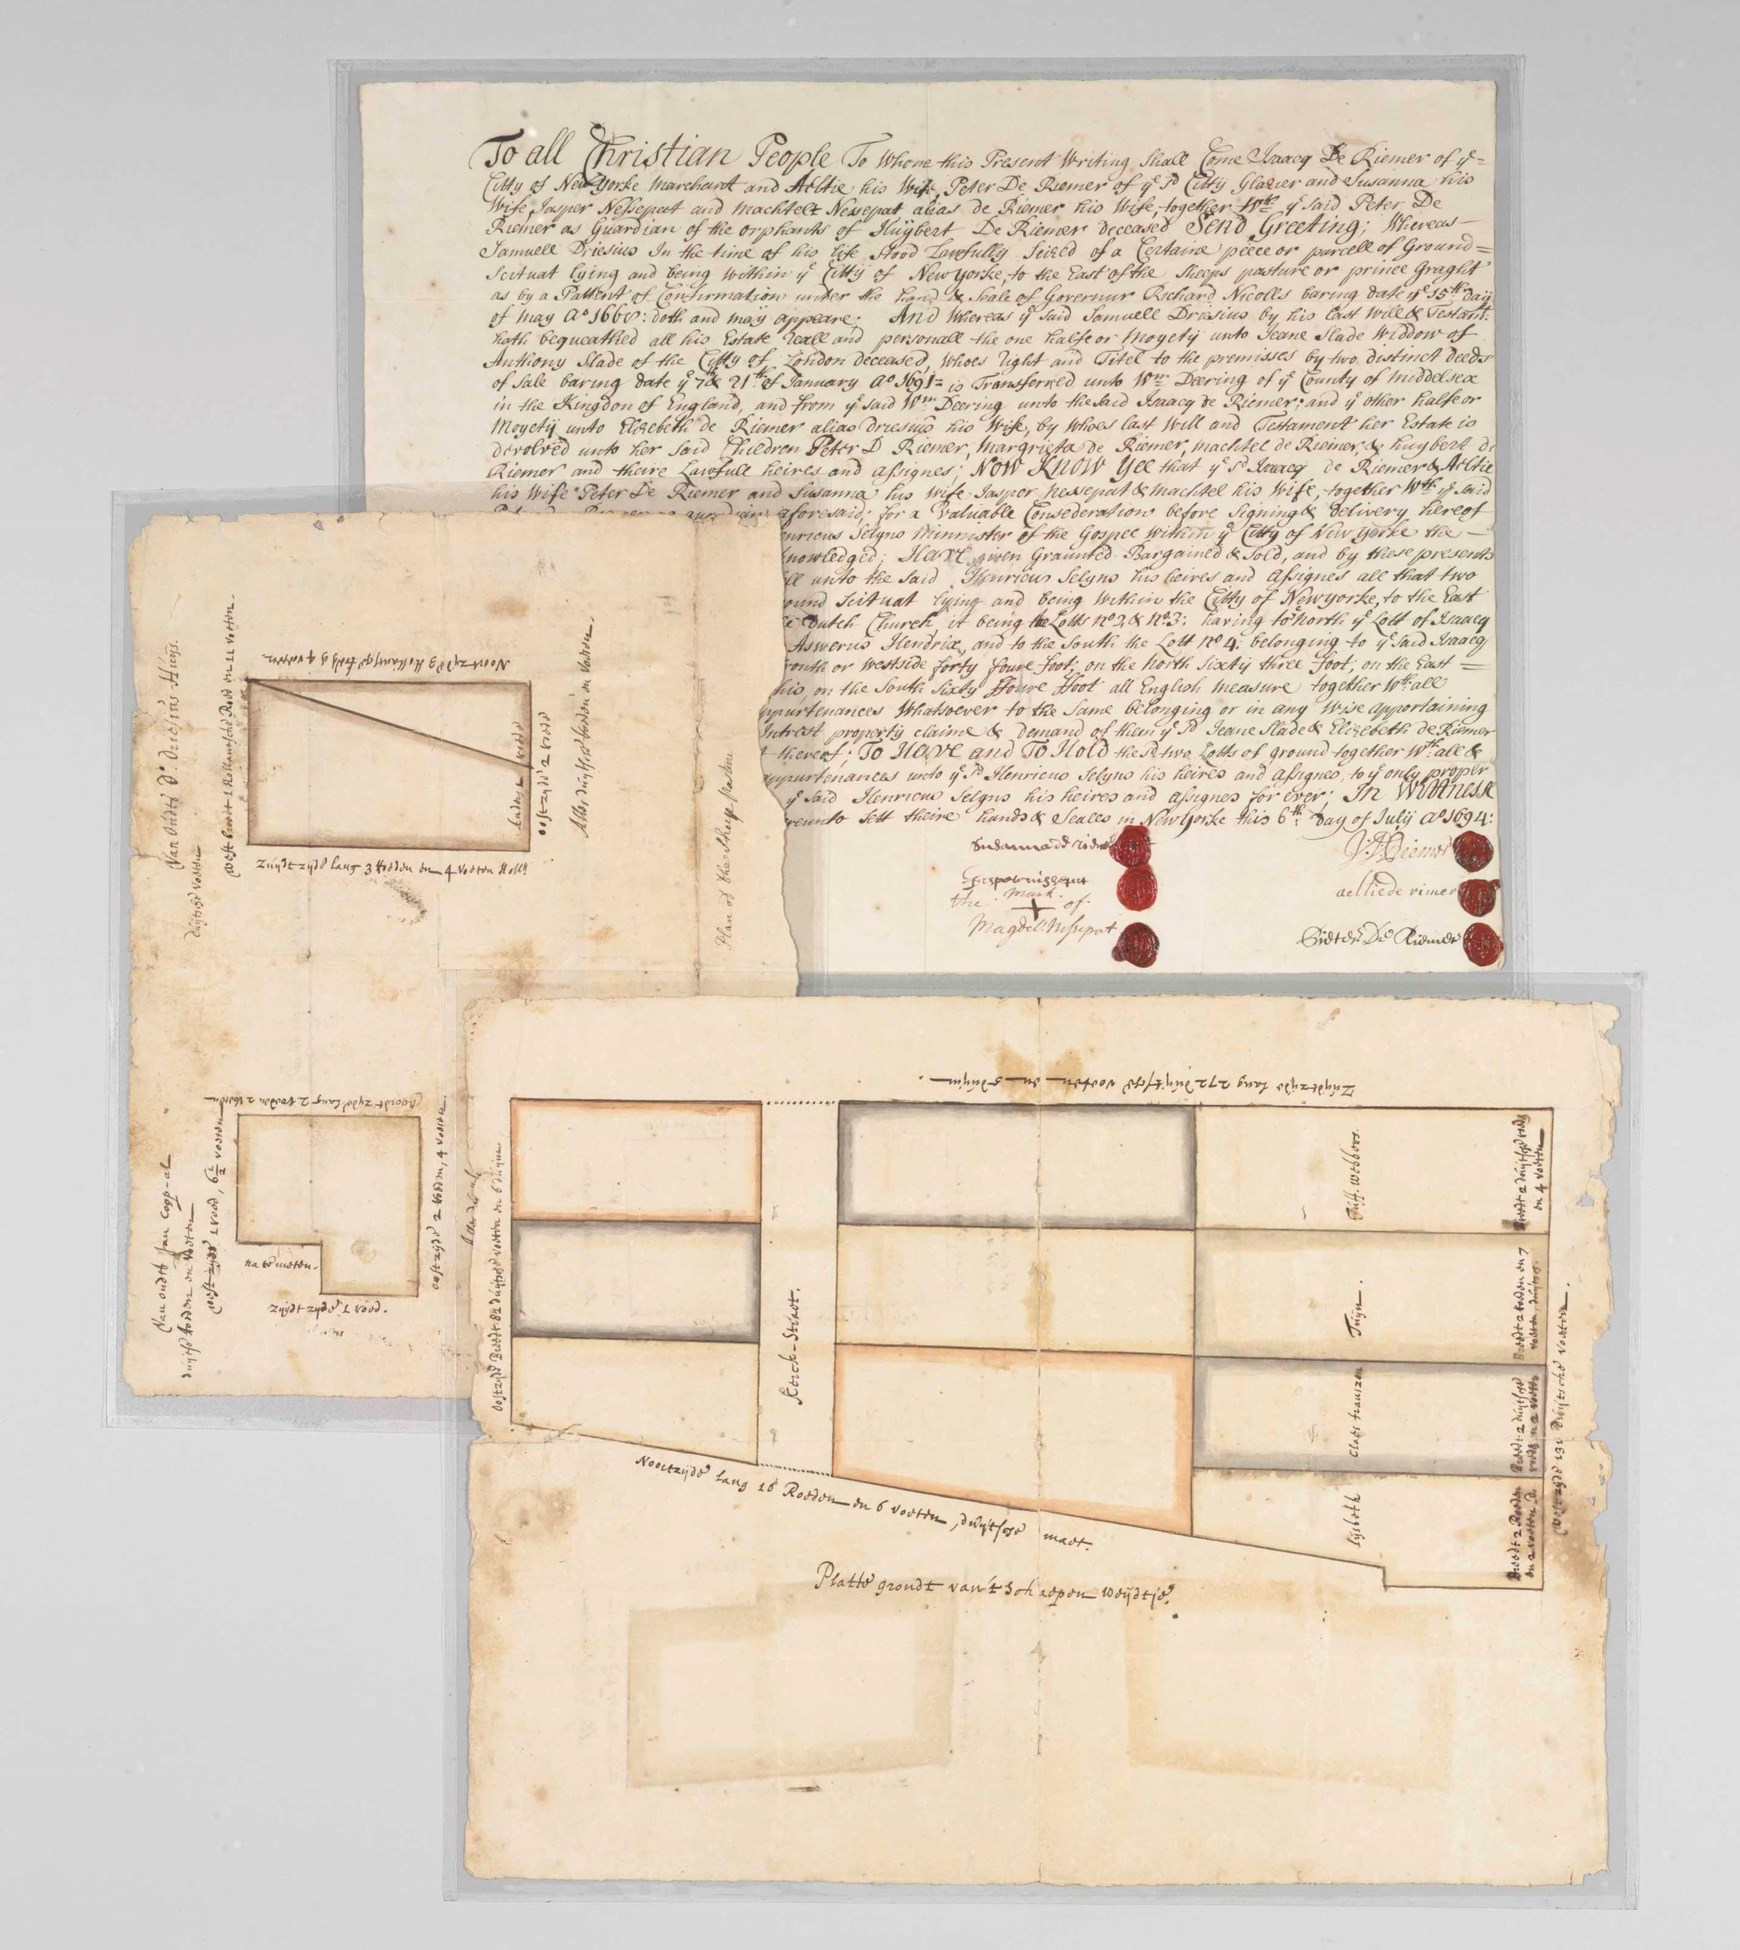 To all Christian People To Whome this Present Writing Shall Come Isaacq De Riemer of yᵉ=
Citty of New Yorke Marchant and Aeltie his Wife, Peter De Riemer of yᵉ sᵈ Citty Glazier and Susanna his
Wife, Jasper Nessepat and Machtelt Nessepat alias de Riemer his Wife, together wᵗʰ yᵉ said Peter De
Riemer as Guardian of the orphants of Huÿbert De Riemer deceased Send Greeting; Whereas —
Samuell Driesius In the time of his life stood Lawfully Seized of a Certaine peece or parcell of Ground =
Scituat lying and being within yᵉ Citty of New Yorke, to the East of the Sheeps pasture or prince Graght
as by a Pattent of Confirmation under the hand & Seale of Governur Richard Nicolls baring date yᵉ 15ᵗʰ day
of may Aᵒ 1668: doth and may appeare; And Whereas yᵉ said Samuell Driesius by his last will & Testamᵗ:
hath bequeathed all his Estate Reall and personall the one halfe or Moyety unto Jeane Slade Widdow of
Anthony Slade of the Citty of London deceased, Whoes right and Titel to the premisses by two distinct deeds
of Sale baring date yᵉ 7ᵗʰ & 21ᵗʰ of January Aᵒ 1691= is Transferred unto Wᵐ Deering of yᵉ County of Middelsex
in the Kingdom of England, and from yᵉ said Wᵐ Deering unto the said Isaacq de Riemer; and yᵉ other halfe or
Moyety unto Elizebeth de Riemer alias driesius his Wife, by Whoes last Will and Testament her Estate is
devolved unto her said Children Peter D Riemer, Margrieta de Riemer, machtel de Riemer, & huybert de
Riemer and theire Lawfull heires and assignes; Now Know Yee that yᵉ sᵈ Isaacq de Riemer & Aeltie
his Wife Peter De Riemer and Susanna his Wife Jasper nessepat & Machtel his Wife, together Wᵗʰ yᵉ said
aforesaid; for a Valuable Consederation before Signing & delivery hereof
enricus Selyns Minnister of the Gospel within yᵉ Citty of New Yorke the —
knowledged; Have given Graunted Bargained & Sold, and by these presents
ll unto the said Henricus Selyns his heires and assignes all that two
ound Scituat lying and being within the Citty of New Yorke, to the East
e Dutch Church it being the Lotts nᵒ 2, & nᵒ 3: having to yᵉ North yᵉ Lott of Isaacq
Aswerus Hendrix, and to the South the Lott nᵒ 4: belonging to yᵉ said Isaacq
front or westside forty foure foot; on the north Sixty three foot, on the East =
his, on the South Sixty Foure Foot all English measure together wᵗʰ all
ppurtenances Whatsoever to the Same belonging or in any Wise Appertaining
Interest property claime & demand of them yᵉ sᵈ Jeane Slade & Elizebeth de Riemer
thereof; To Have and To Hold the sᵈ two Lotts of ground together Wᵗʰ all &
appurtenances unto yᵉ sᵈ Henricus Selyns his heires and assignes, to yᵉ only proper
yᵉ said Henricus Selyns his heires and assignes for ever; In Wittness
reunto sett theire hands & Seales in New Yorke this 6ᵗʰ day of July Aᵒ 1694:
Susanna de rimer
the Mark of
Magdel: Nessepat
De Riemer
aeltie de rimer
Pieter De Riemer
Noort zyde
Zuydt zyde lang 3 Roeden en 4 voeten Holl:
oost zyd 2 roed
Plan of the Sheep Pasture
Noordt zyde lang 2 roeden 2 voeten
oost zyde 2 roeden, 4 voeten
na te meten.
Zuijdtzyde lang 272 duijtsche voeten en 5 duijm.
oostzyde Breedt 82 duijtsche voeten en 6 duijm.
Kerck-Straet.
Juff. Webbers.
Breedt 2 duijtsche roeden en 4 voeten
Tuijn.
Breedt 2 roeden en 7 voeten, duijtse.
Claes franszen
Breedt 2 duijtsche
Lijsbeth
Breedt 2 Roeden
westzyde 131 duijtsche voeten.
Noortzijde lang 26 Roeden en 6 voeten, duijtsche maet.
Platte grondt van't Schaepen weijdtje.